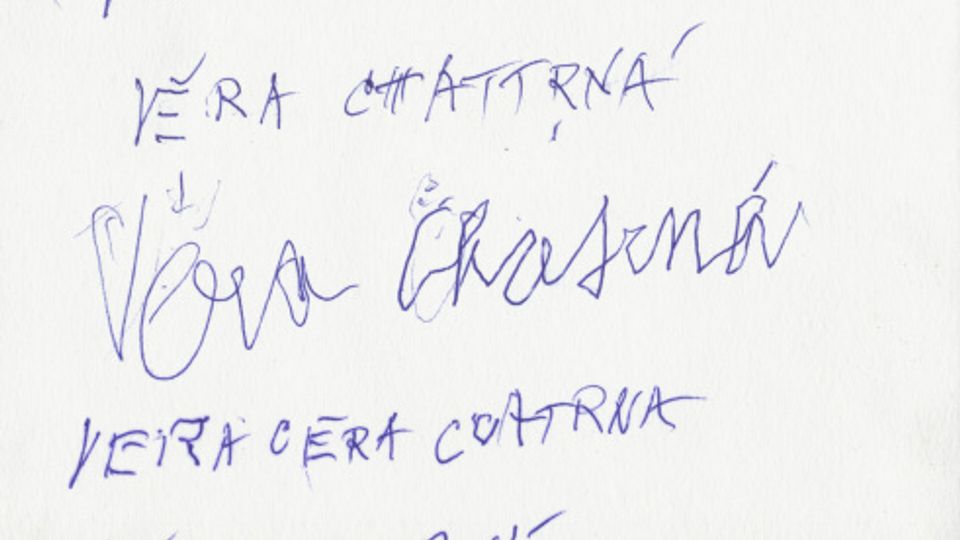 VĚRA CHATTRNÁ
Věra Chatrná
VEIRA CERA CUATRNA